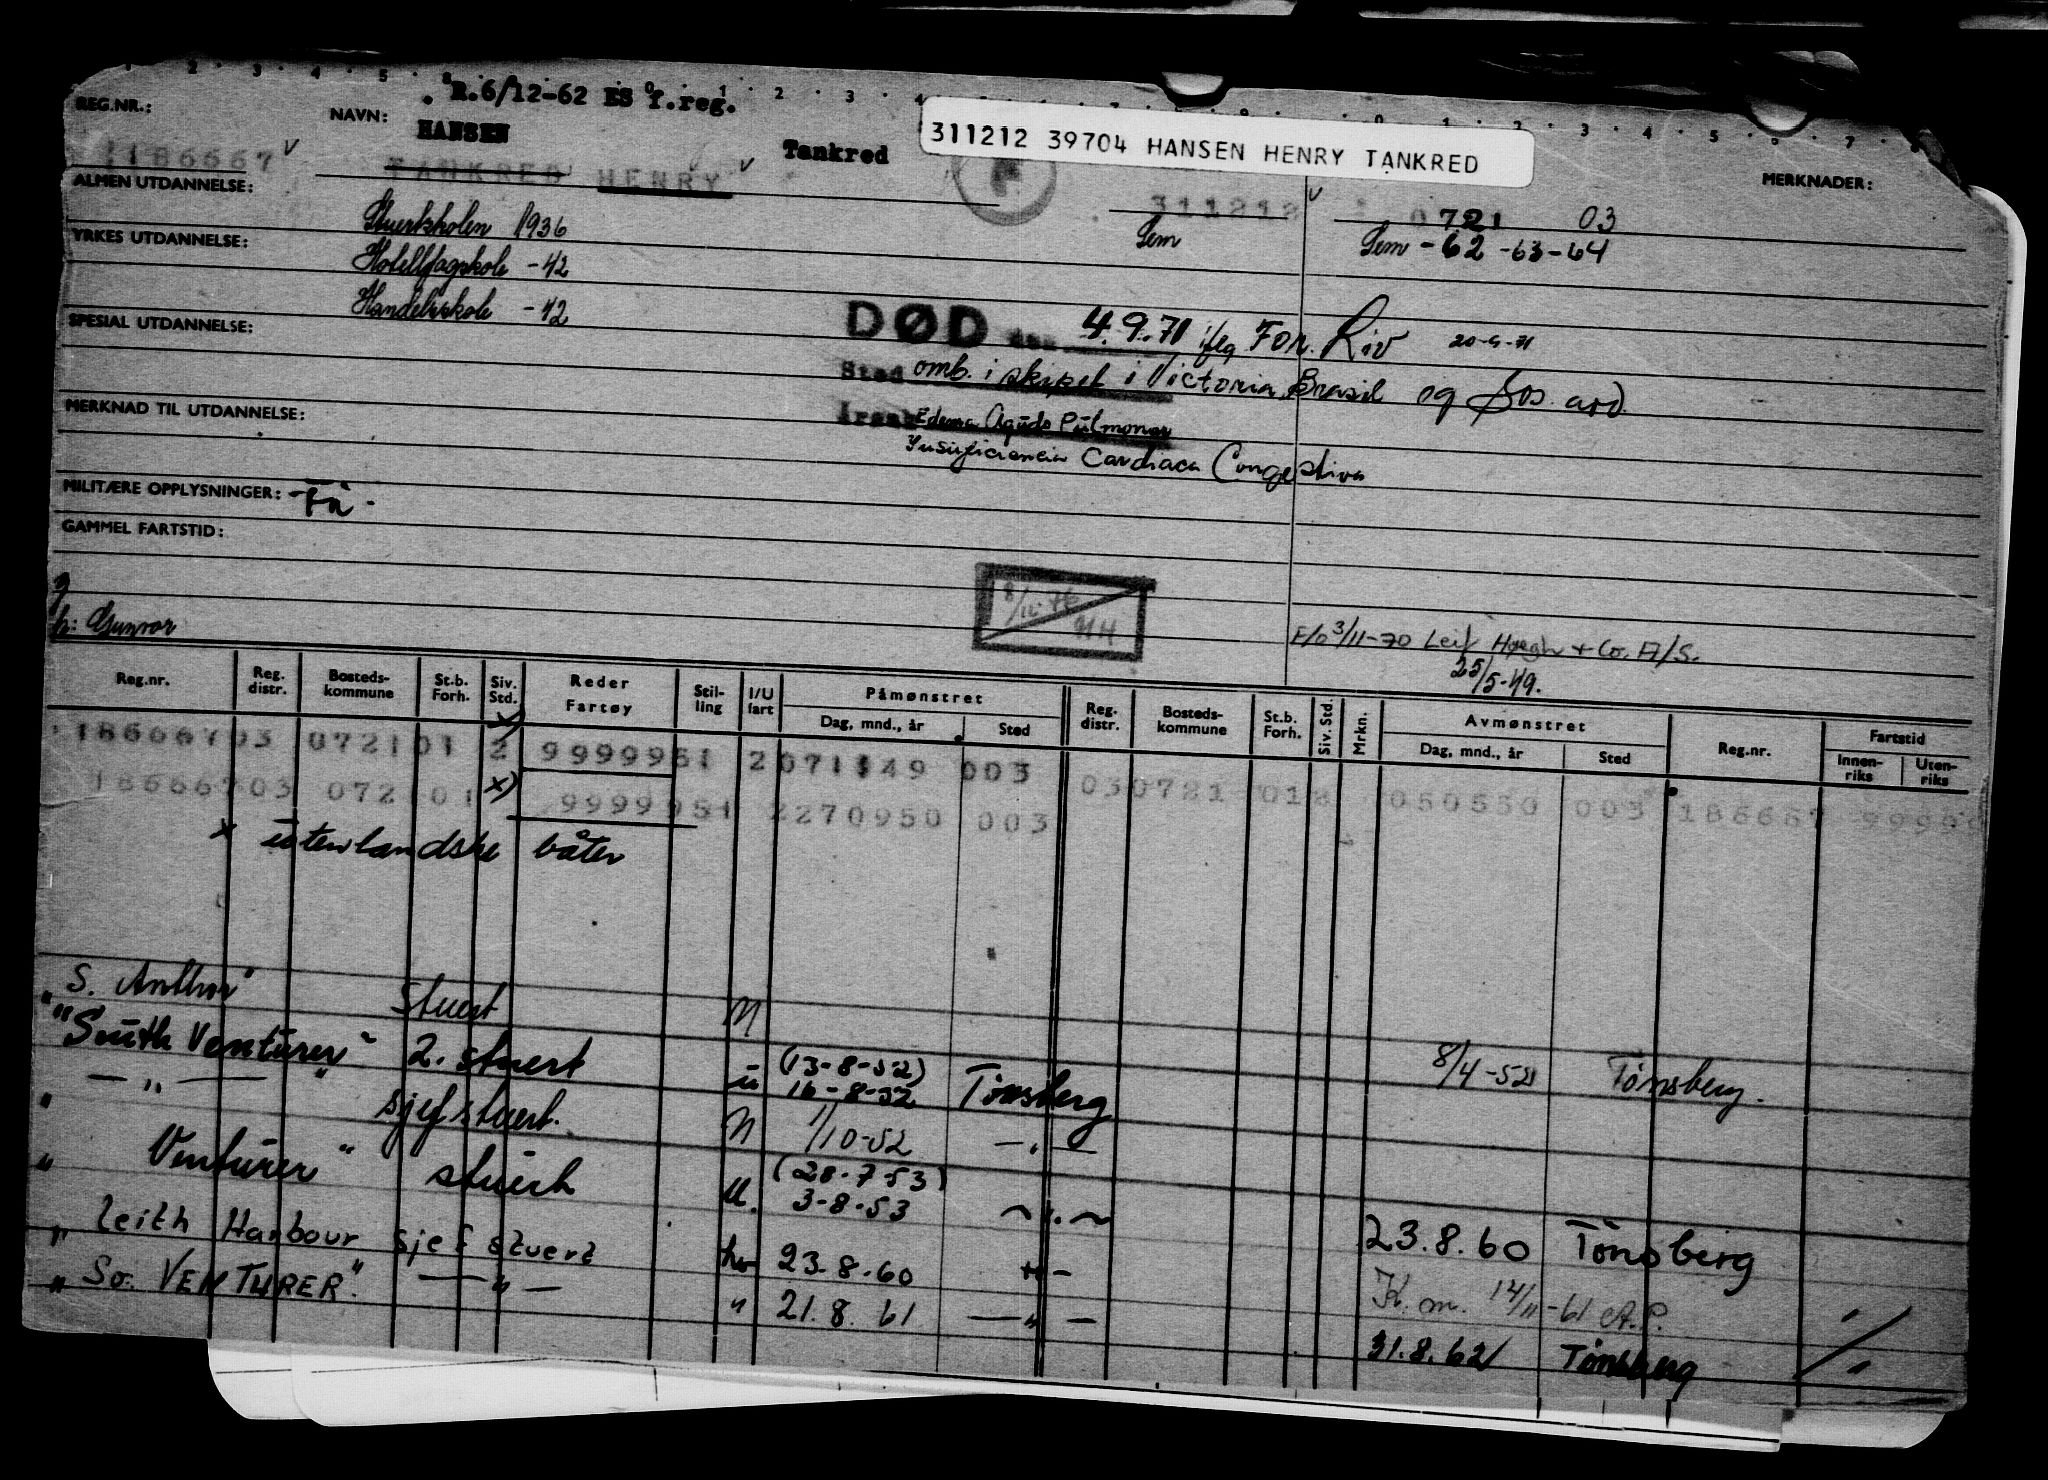 R.6/12-62 ES f.reg.
311212 39704 HANSEN HENRY TANKRED
REG.NR.: 186667
NAVN: HANSEN
TANKRED HENRY Tankred
MERKNADER:
ALMEN UTDANNELSE:
311212
0721 03
Stuertskolen 1936
Sem
Sem -62 -63-64
YRKES UTDANNELSE:
Hotellfagskole -42
Handelsskole -42
SPESIAL UTDANNELSE:
DØD den 4.9.71 iflg For. Riv 20-9-71
Sted omb. i skipet i Victoria Brasil og Sos. avd.
MERKNAD TIL UTDANNELSE:
Årsak Edema Agudo Pulmonar
Insuficiencia Cardiaca Congestiva
MILITÆRE OPPLYSNINGER:
GAMMEL FARTSTID:
g
h: Gunvor
8/11-76
HH
F/o 3/11-70 Leif Høegh + Co. A/S.
25/5-49.
Reg.nr. Reg. distr. Bosteds-kommune St.b. Forh. Siv. Std. Reder Fartøy Stil-ling I/U fart Påmønstret Dag, mnd., år Sted Reg. distr. Bosteds-kommune St.b. Forh. Siv. Std. Mrkn. Avmønstret Dag, mnd., år Sted Reg.nr. Fartstid Innen-riks Uten-riks
18666703 072101 2 x) 9999951 2071149 003
18666703 072101 x) 9999951 2270950 003 030721 01 050550 003 186667 99999
x utenlandske båter
" S. Anthur" Stuert N
8/4-52 Tønsberg.
"South Venturer" 2. stuert u (13-8-52) 16-8-52 Tønsberg
— " — " sjefstuert. N 1/10-52 — " —
" Venturer" stuert u. (28-7-53) 3-8-53
23.8.60 Tønsberg
" Leith Harbour sjef stuert 23.8.60
K. m. 14/11-61 A.P. "
" So. VENTURER". — " — " 21.8.61 — " —
31.8.62 Tønsberg "